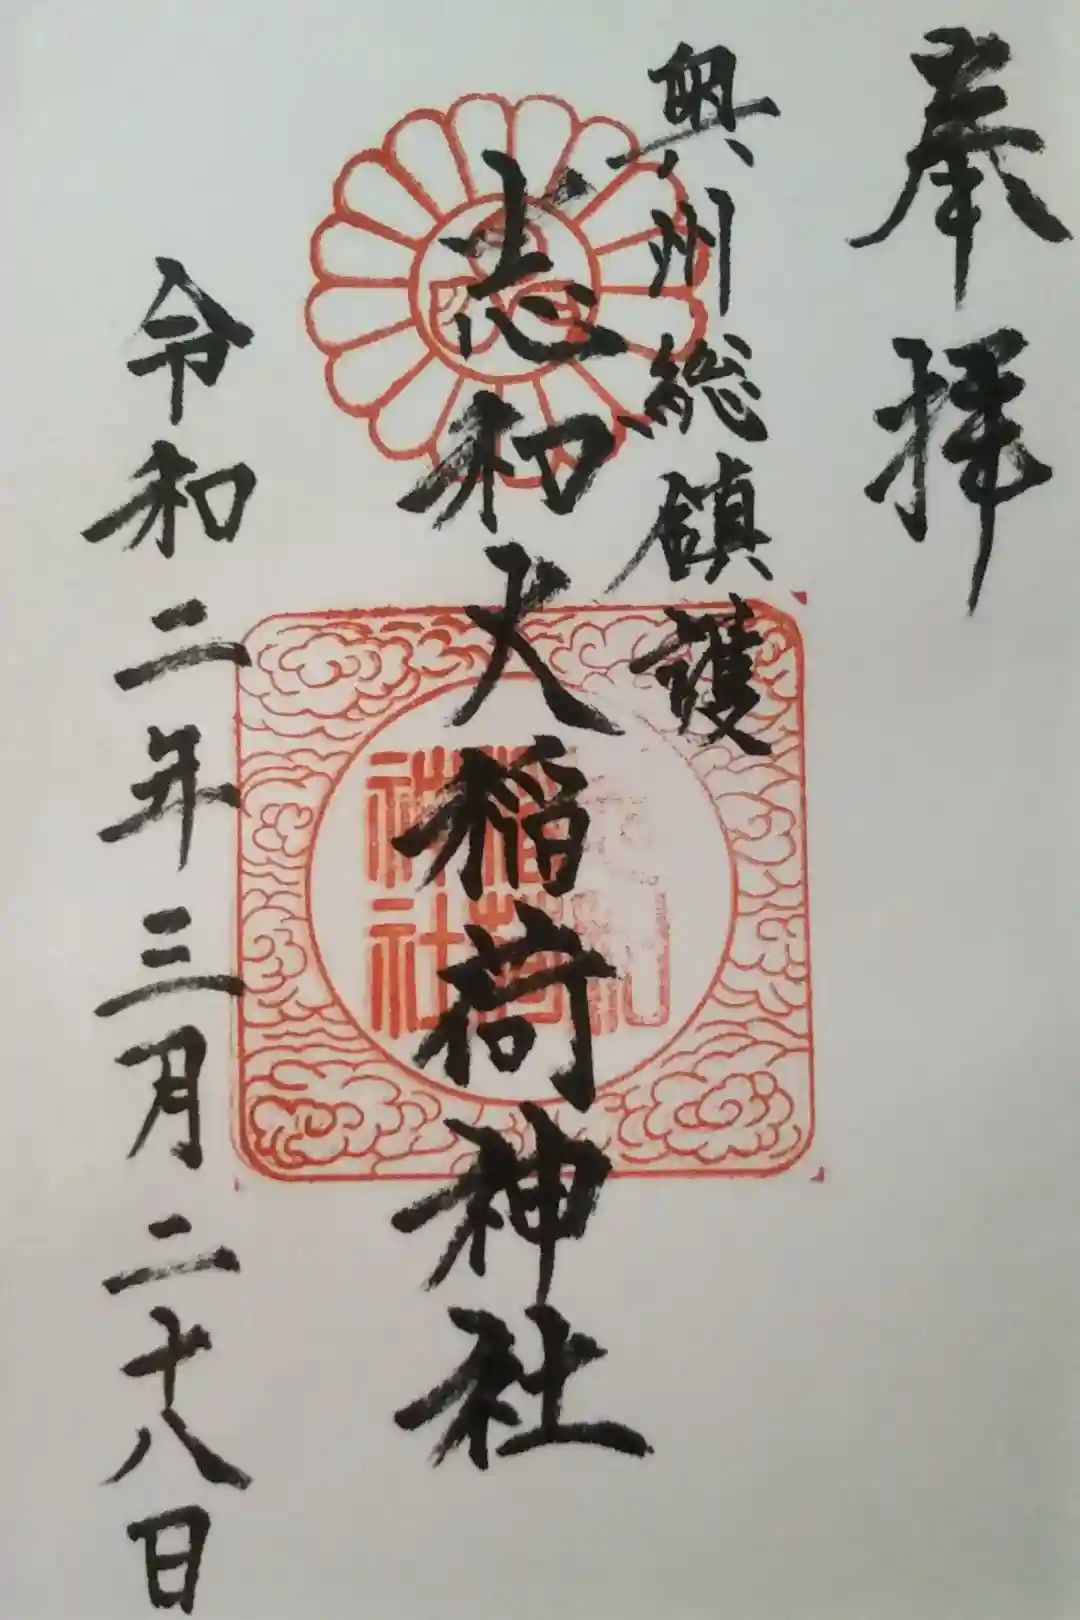 奉拝
奥州総鎮護
志和大稲荷神社
令和二年三月二十八日
志和
稲荷
神社